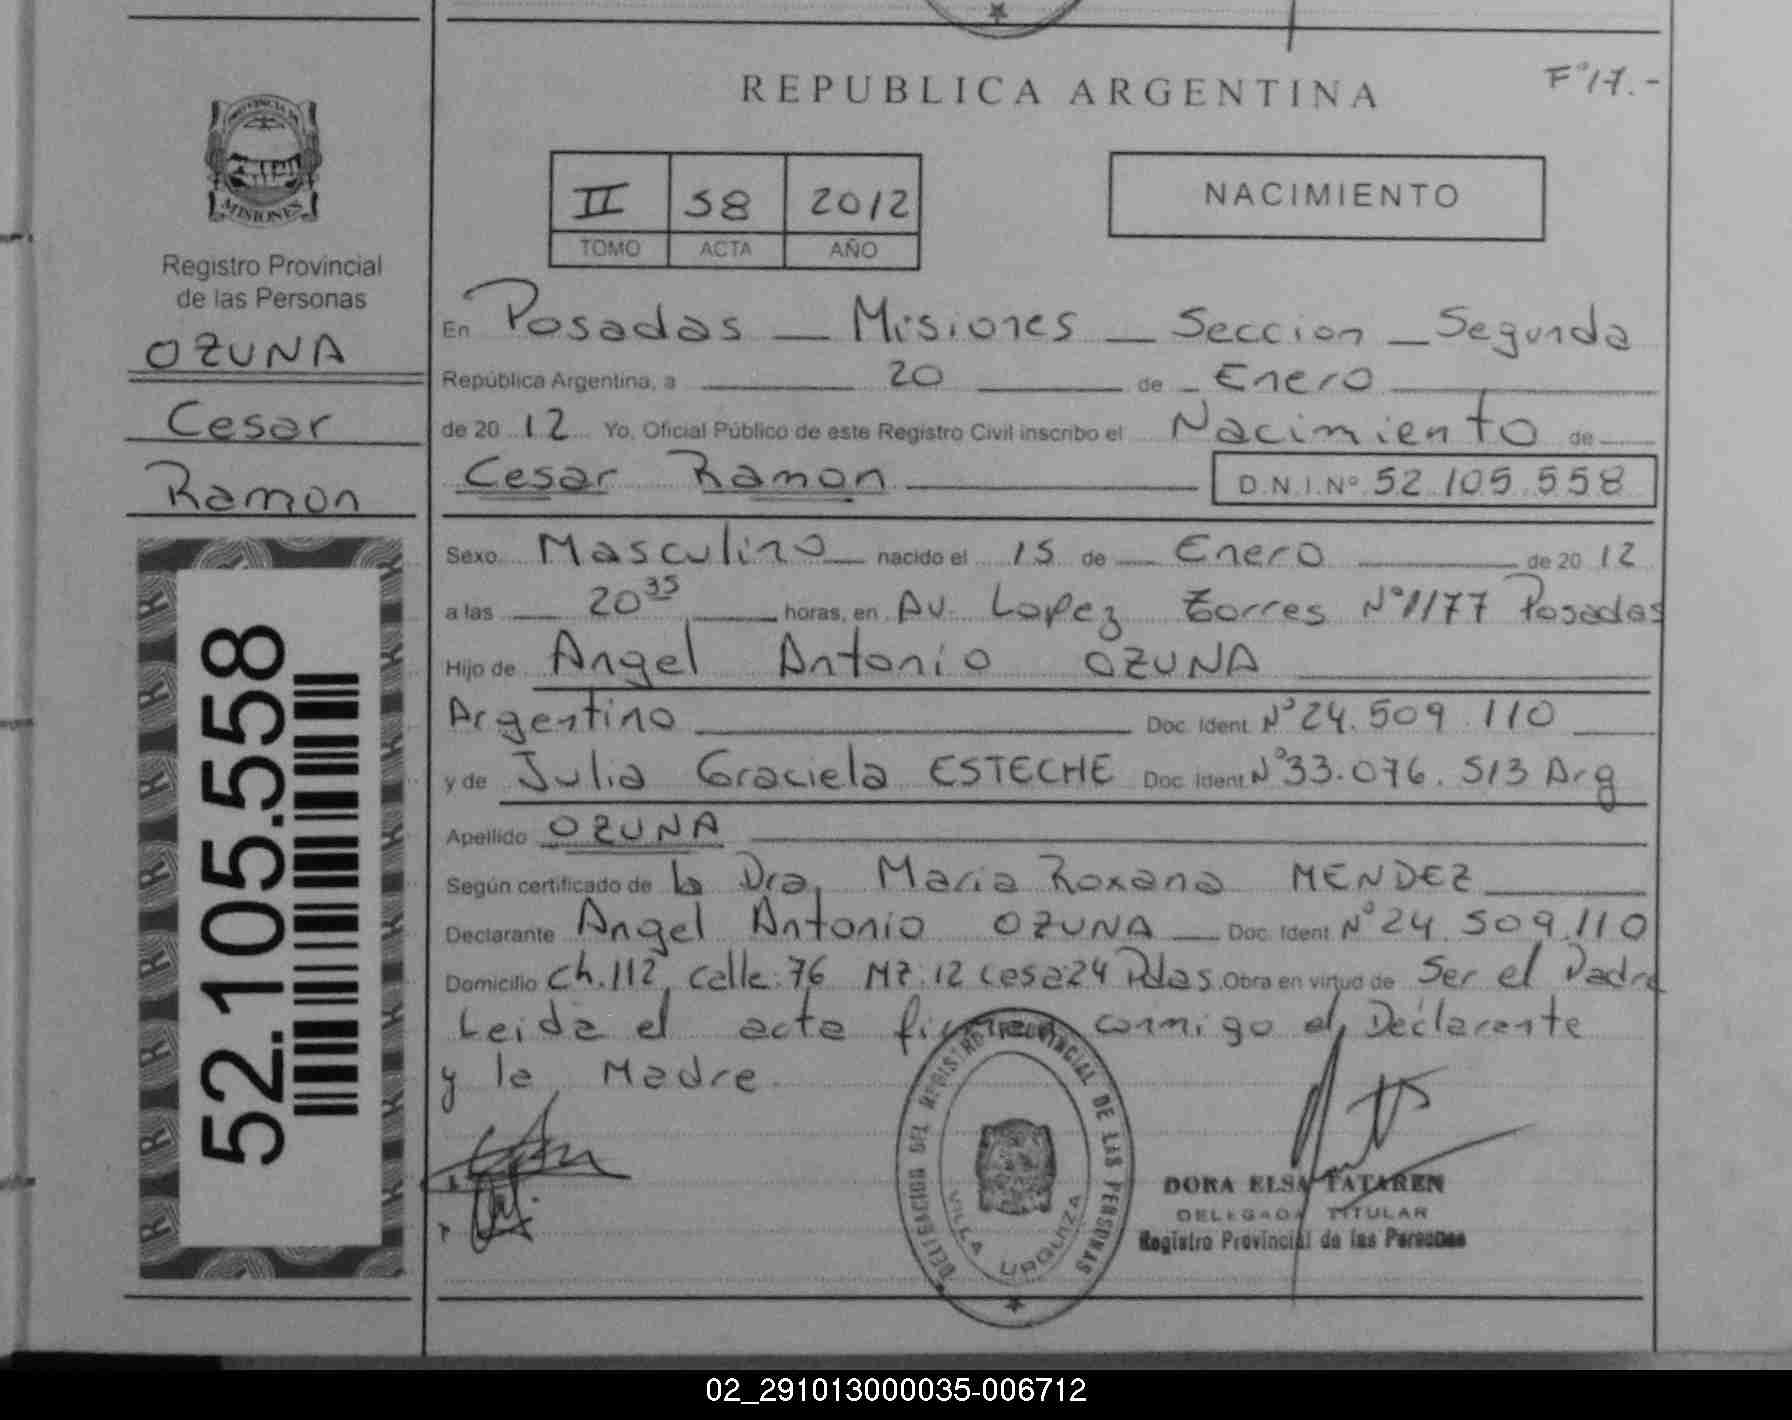 REPUBLICA ARGENTINA
Fº17.-
PROVINCIA DE
MISIONES
Registro Provincial
de las Personas
OZUNA
Cesar
Ramon
52.105.558
II 58 2012
TOMO ACTA AÑO
NACIMIENTO
En Posadas _ Misiones _ Seccion _ Segunda
República Argentina, a 20 de Enero
de 20 12 Yo, Oficial Público de este Registro Civil inscribo el Nacimiento de
Cesar Ramon D.N.I.Nº 52.105.558
Sexo Masculino nacido el 15 de Enero de 20 12
a las 20 35 horas, en AV. Lopez Torres Nº1177 Posadas
Hijo de Angel Antonio OZUNA
Argentino Doc. Ident. Nº24.509.110
y de Julia Graciela ESTECHE Doc. Ident. Nº33.076.513 Arg
Apellido OZUNA
Según certificado de la Dra. Maria Roxana MENDEZ
Declarante Angel Antonio OZUNA Doc. Ident. Nº24.509.110
Domicilio Ch.112 calle:76 MZ:12 casa24 Pdas. Obra en virtud de Ser el Padre
Leida el acta firman conmigo el Declarante
y la Madre
DELEGACION DEL REGISTRO PROVINCIAL DE LAS PERSONAS
VILLA URQUIZA
DORA ELSA TATAREN
DELEGADA TITULAR
Registro Provincial de las Personas
02_291013000035-006712